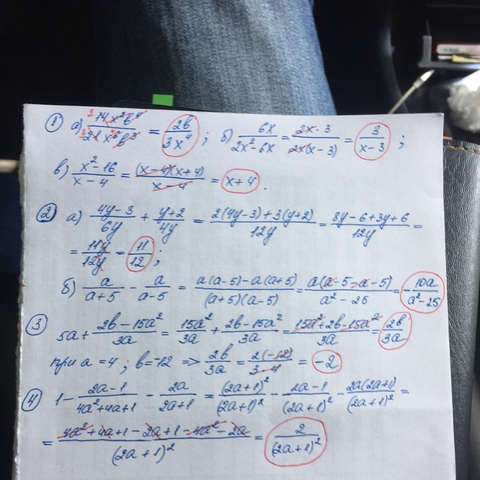 1 а) 14x²b⁴/21x⁶b³ = 2b/3x⁴ ; б) 6x/2x²-6x = 2x·3/2x(x-3) = 3/x-3 ;
в) x²-16/x-4 = (x-4)(x+4)/x-4 = x+4 .
2 а) 4y-3/6y + y+2/4y = 2(4y-3)+3(y+2)/12y = 8y-6+3y+6/12y =
= 11y/12y = 11/12 ;
б) a/a+5 - a/a-5 = a(a-5)-a(a+5)/(a+5)(a-5) = a(a-5-a-5)/a²-25 = -10a/a²-25
3 5a + 2b-15a²/3a = 15a²/3a + 2b-15a²/3a = 15a²+2b-15a²/3a = 2b/3a
при a=4; b=-12 => 2b/3a = 2(-12)/3·4 = -2
4 1 - 2a-1/4a²+4a+1 - 2a/2a+1 = (2a+1)²/(2a+1)² - 2a-1/(2a+1)² - 2a(2a+1)/(2a+1)² =
= 4a²+4a+1-2a+1-4a²-2a/(2a+1)² = 2/(2a+1)²